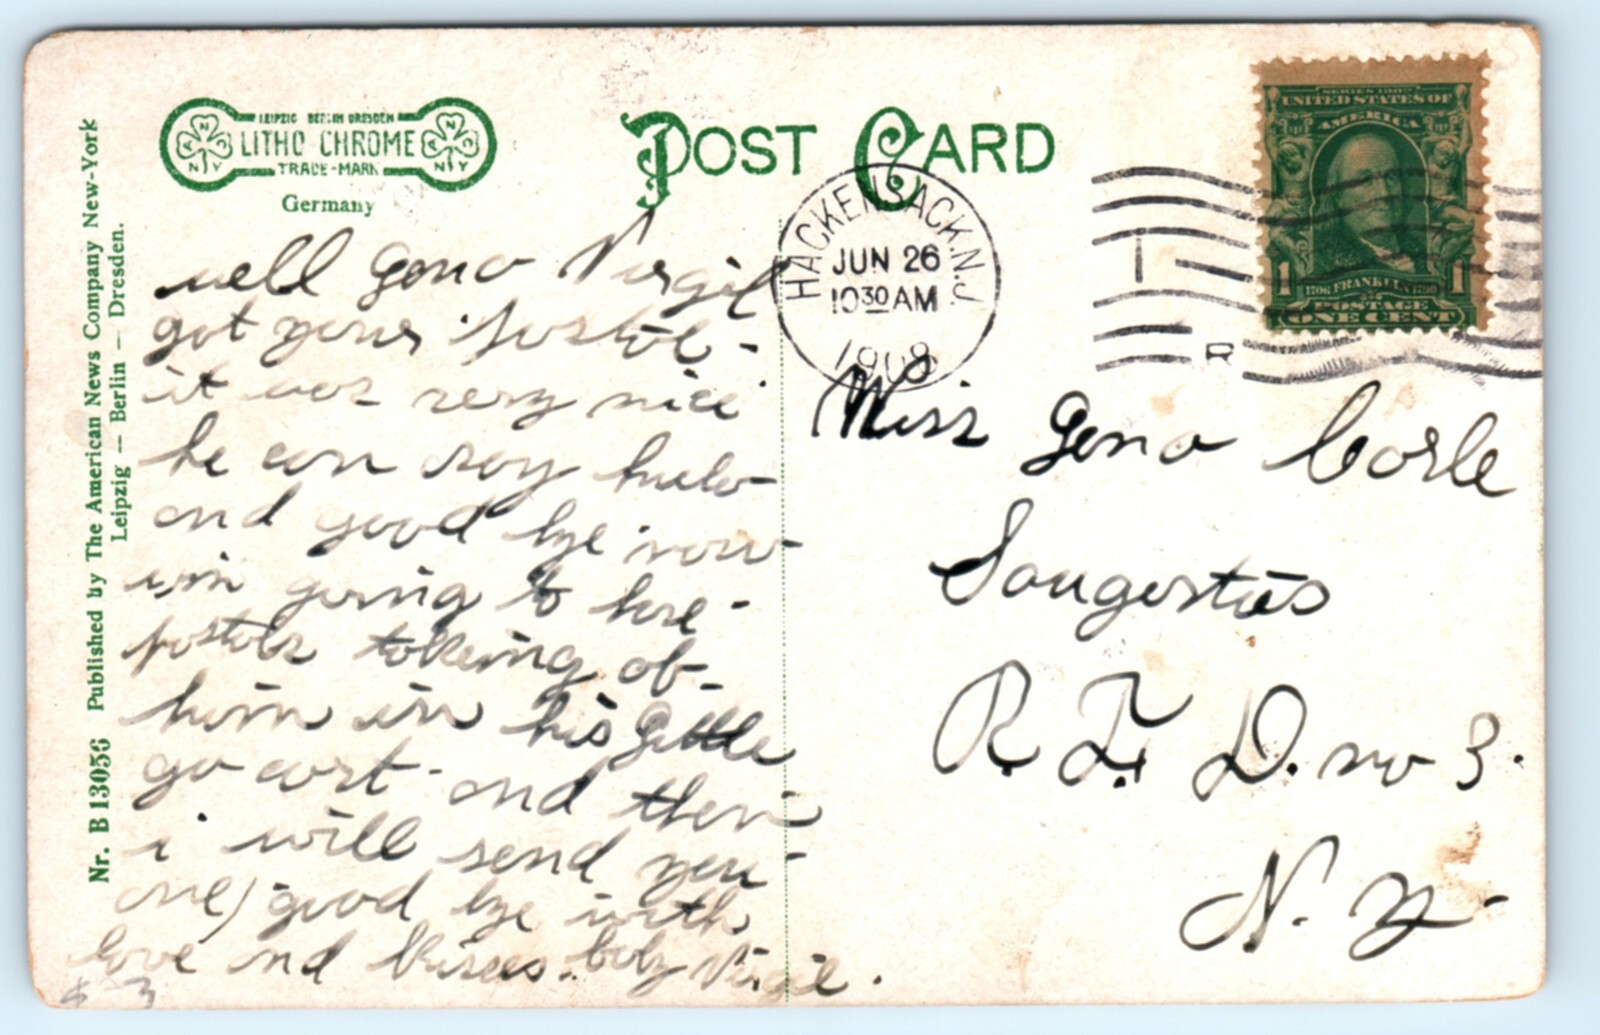 Nr. B 13056 Published by The American News Company New-York
Leipzig — Berlin — Dresden.
LEIPZIG BERLIN DRESDEN
LITHO CHROME
TRADE-MARK
Germany
POST CARD
HACKENSACK, N.J.
JUN 26
10 30 AM
1908
SERIES 1902
UNITED STATES OF
AMERICA
1 1
1706 FRANKLIN 1790
POSTAGE
ONE CENT
R
well Gena Virgil
got your postal -
it was very nice
he can say hulo
and good bye now
im going to have -
postals takeing of -
him in his little
go cart and then
i will send you
one) good bye with
love and kisses. baby Virgil.
$ 3
Miss Gena Carle
Saugerties
R. F. D. no 3.
N. Y.